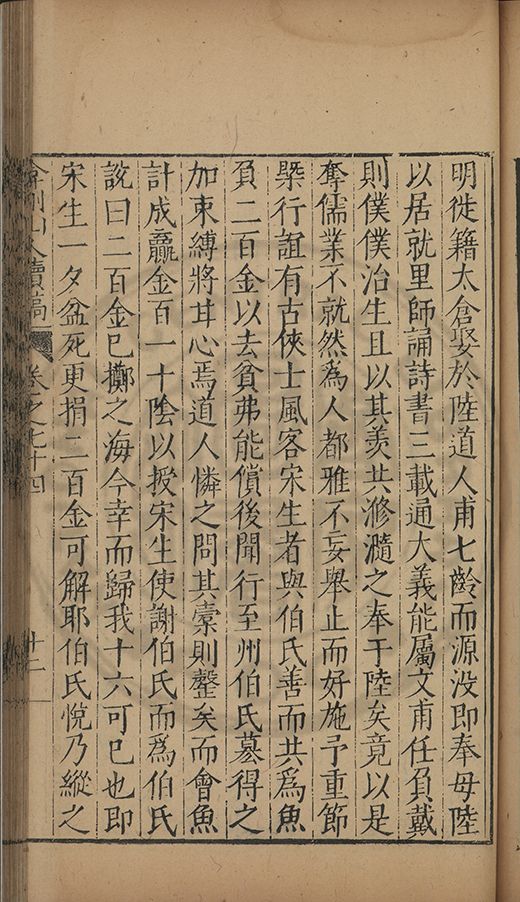 明徙籍太倉娶於陸道人甫七齡而源没即奉母陸
以居就里師誦詩書三載通大義能屬文甫任負戴
則僕僕治生且以其羡共滫瀡之奉于陸矣竟以是
奪儒業不就然為人都雅不妄舉止而好施予重節
槩行誼有古俠士風客宋生者與伯氏善而共爲魚
負二百金以去貧弗能償後聞行至州伯氏墓得之
加束縛將甘心焉道人憐之問其橐則罄矣而會魚
計成贏金百一十陰以授宋生使謝伯氏而爲伯氏
說曰二百金已擲之海今幸而歸我十六可已也即
宋生一夕盆死更捐二百金可解耶伯氏悅乃縱之
弇州山人續稿 卷之七十四 十二